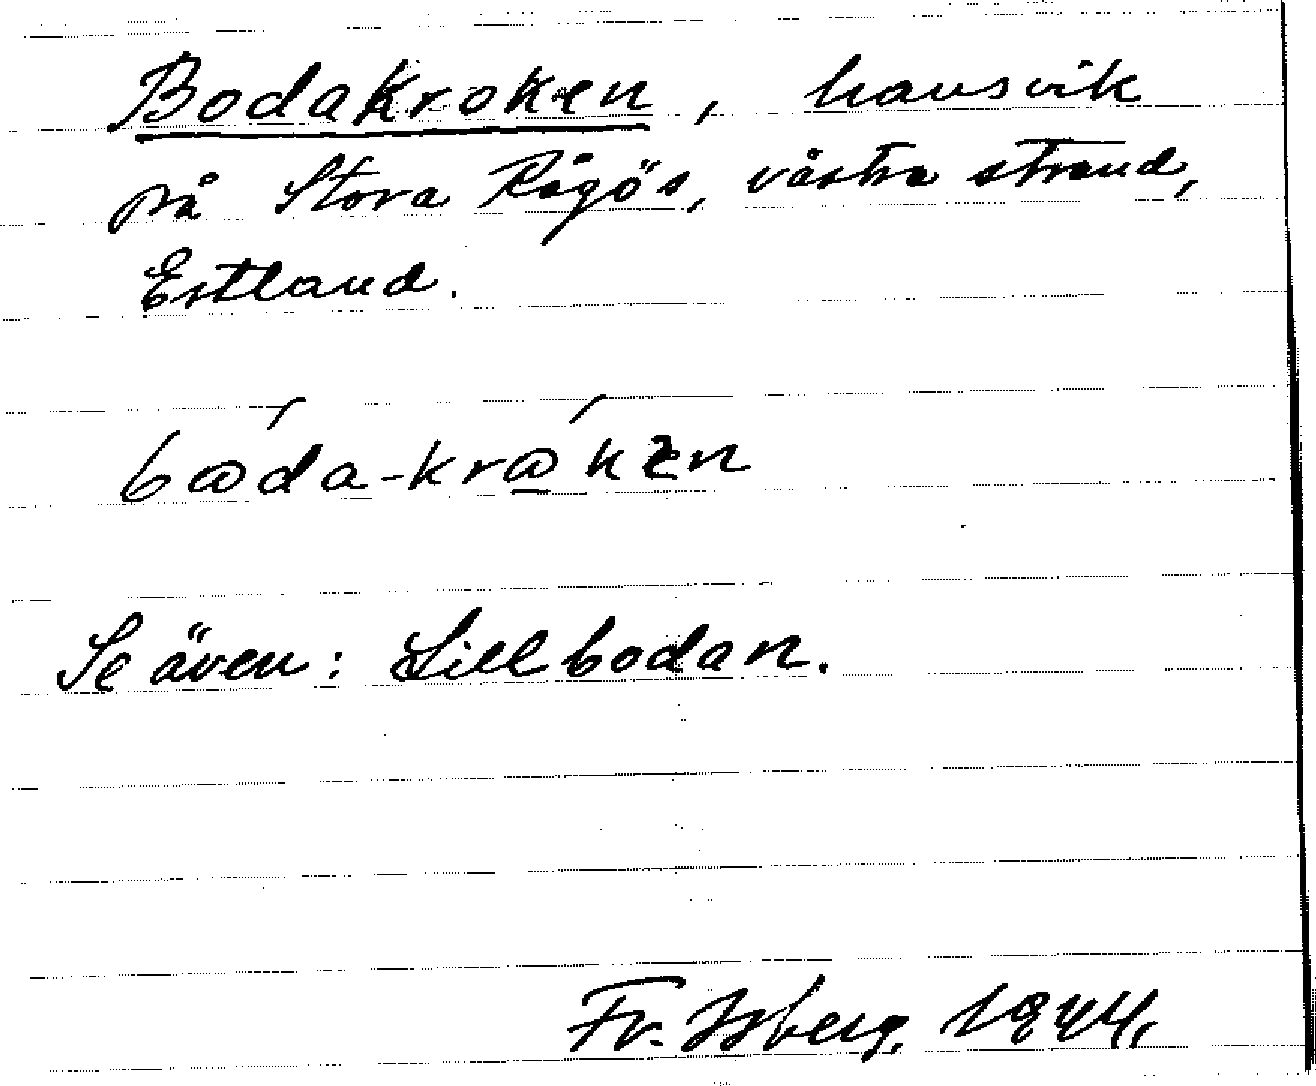 Bodakroken, havsvik
på Stora Rågös, västra strand,
Estland.
Se även: Lillbodan.
Fr. Isberg, 1944.